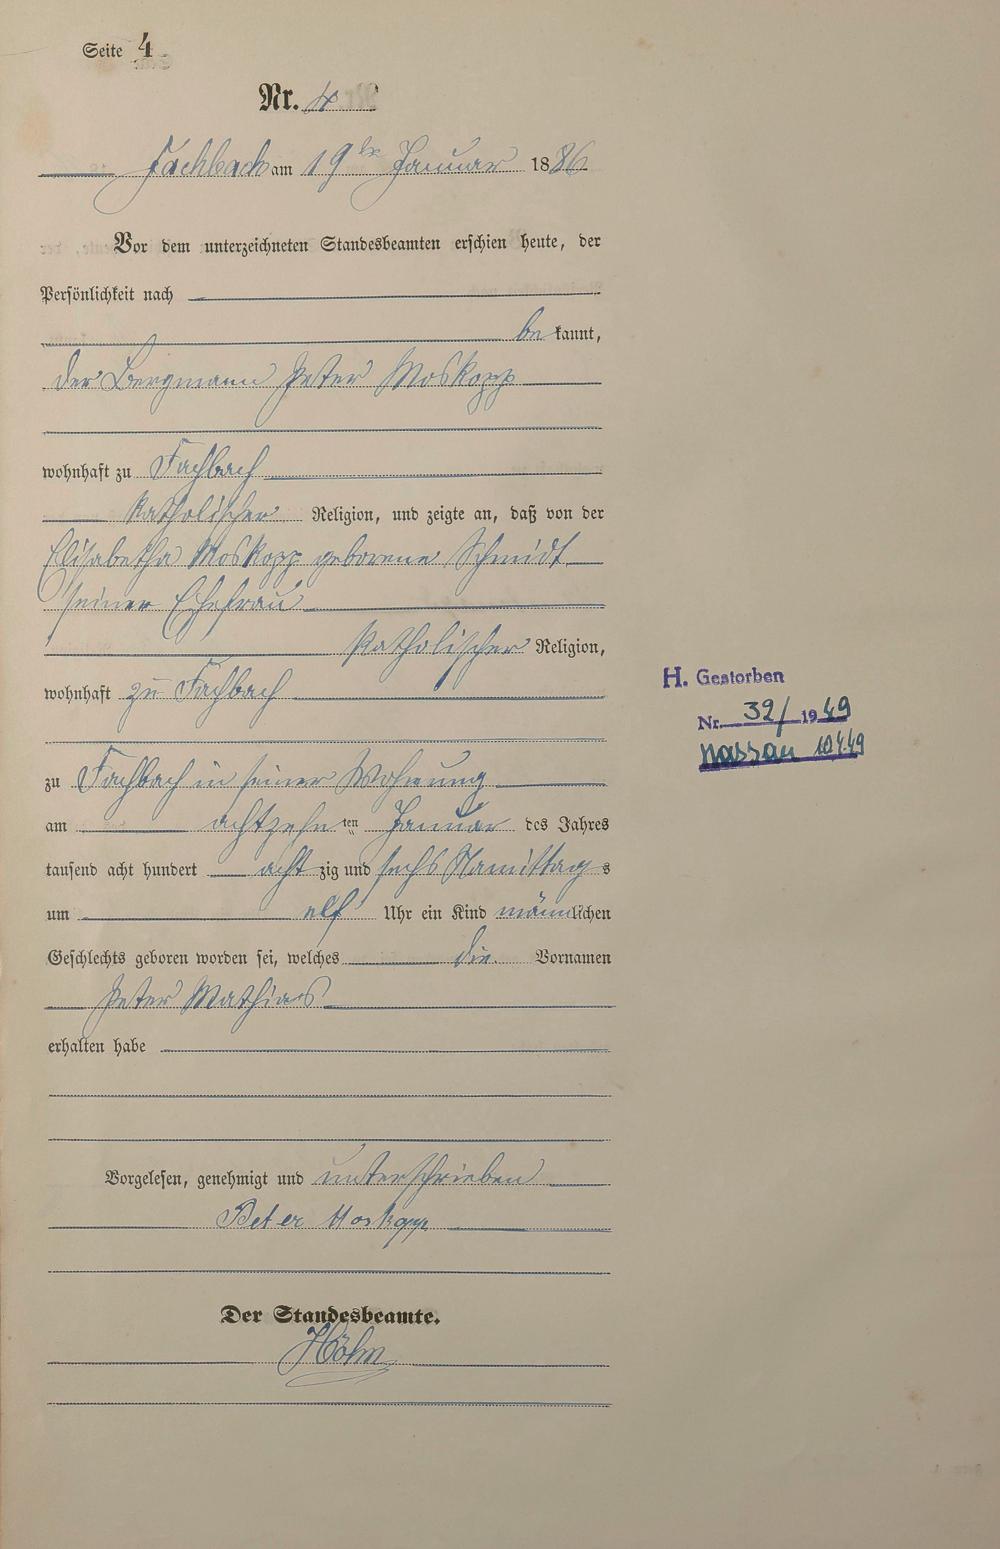 Seite 4
Nr. 4
Fachbach am 19ten Januar 1886
Vor dem unterzeichneten Standesbeamten erschien heute, der
Persönlichkeit nach
be kannt,
der Bergmann Peter Moskopp
wohnhaft zu Fachbach
katholischer Religion, und zeigte an, daß von der
Elisabetha Moskopp geborene Schmidt
seiner Ehefrau
katholischer Religion,
wohnhaft zu Fachbach
zu Fachbach in seiner Wohnung
am achtzehn ten Januar des Jahres
tausend acht hundert acht zig und sechs Namittag s
um elf Uhr ein Kind männlichen
Geschlechts geboren worden sei, welches die Vornamen
Peter Mathias
erhalten habe
Vorgelesen, genehmigt und unterschrieben
Peter Moskopp
Der Standesbeamte.
Höhn
H. Gestorben
Nr. 32/1949
Nassau 10.4.49